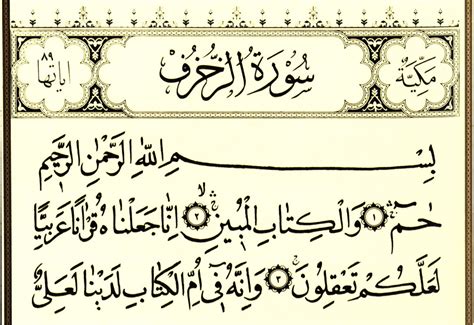 مكية
سورة الزخرف
آياتها ٨٩
بِسْمِ اللهِ الرَّحْمٰنِ الرَّحِيْمِ
حٰمٓ ۝١ وَالْكِتَابِ الْمُبِيْنِ ۝٢ اِنَّا جَعَلْنَاهُ قُرْاٰنًا عَرَبِيًّا
لَعَلَّكُمْ تَعْقِلُوْنَ ۝٣ وَاِنَّهُ فِيْ اُمِّ الْكِتَابِ لَدَيْنَا لَعَلِيٌّ